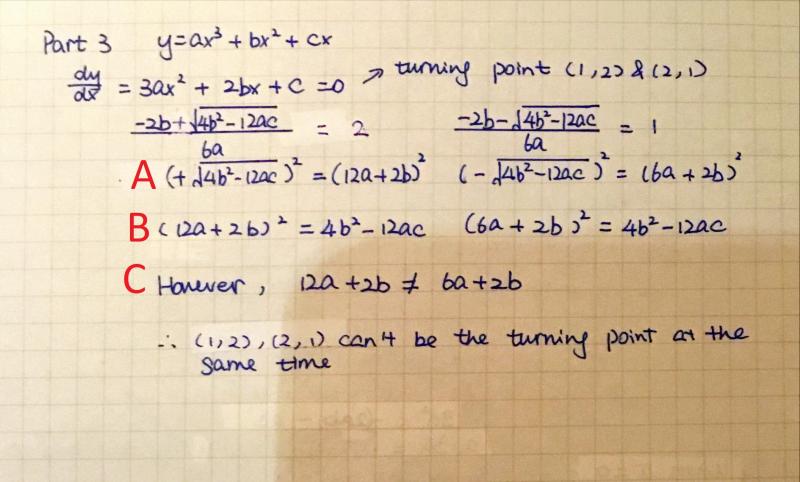 Part 3 y=ax³ + bx² + cx
dy/dx = 3ax² + 2bx + C =0 → turning point (1,2) & (2,1)
(-2b+√(4b²-12ac))/6a = 2 (-2b-√(4b²-12ac))/6a = 1
A (+√(4b²-12ac))² = (12a+2b)² (-√(4b²-12ac))² = (6a+2b)²
B (12a+2b)² = 4b²-12ac (6a+2b)² = 4b²-12ac
C However, 12a+2b ≠ 6a+2b
∴ (1,2), (2,1) can't be the turning point at the
same time